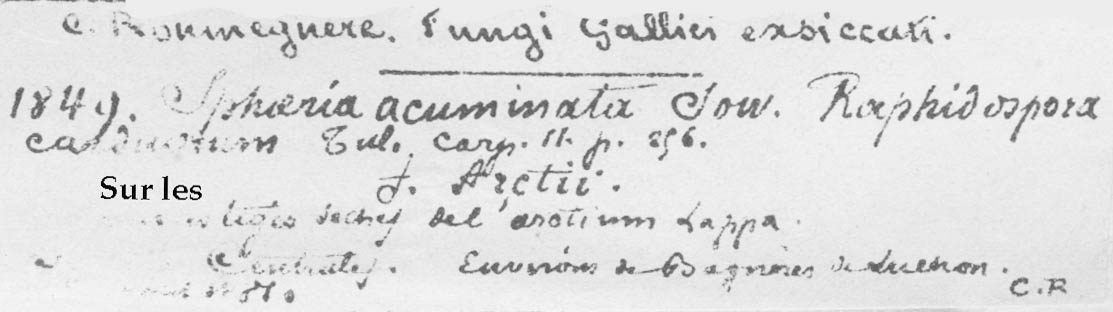 C. Roumeguere. Fungi Gallici exsiccati.
1849. Sphæria acuminata Sow. Raphidospora
carduorum Tul. Carp. II. p. 256.
f. Arctii.
Sur les
tiges seches de l'arctium Lappa.
Centrales. Environs de Bagneres de Luchon.
C. R